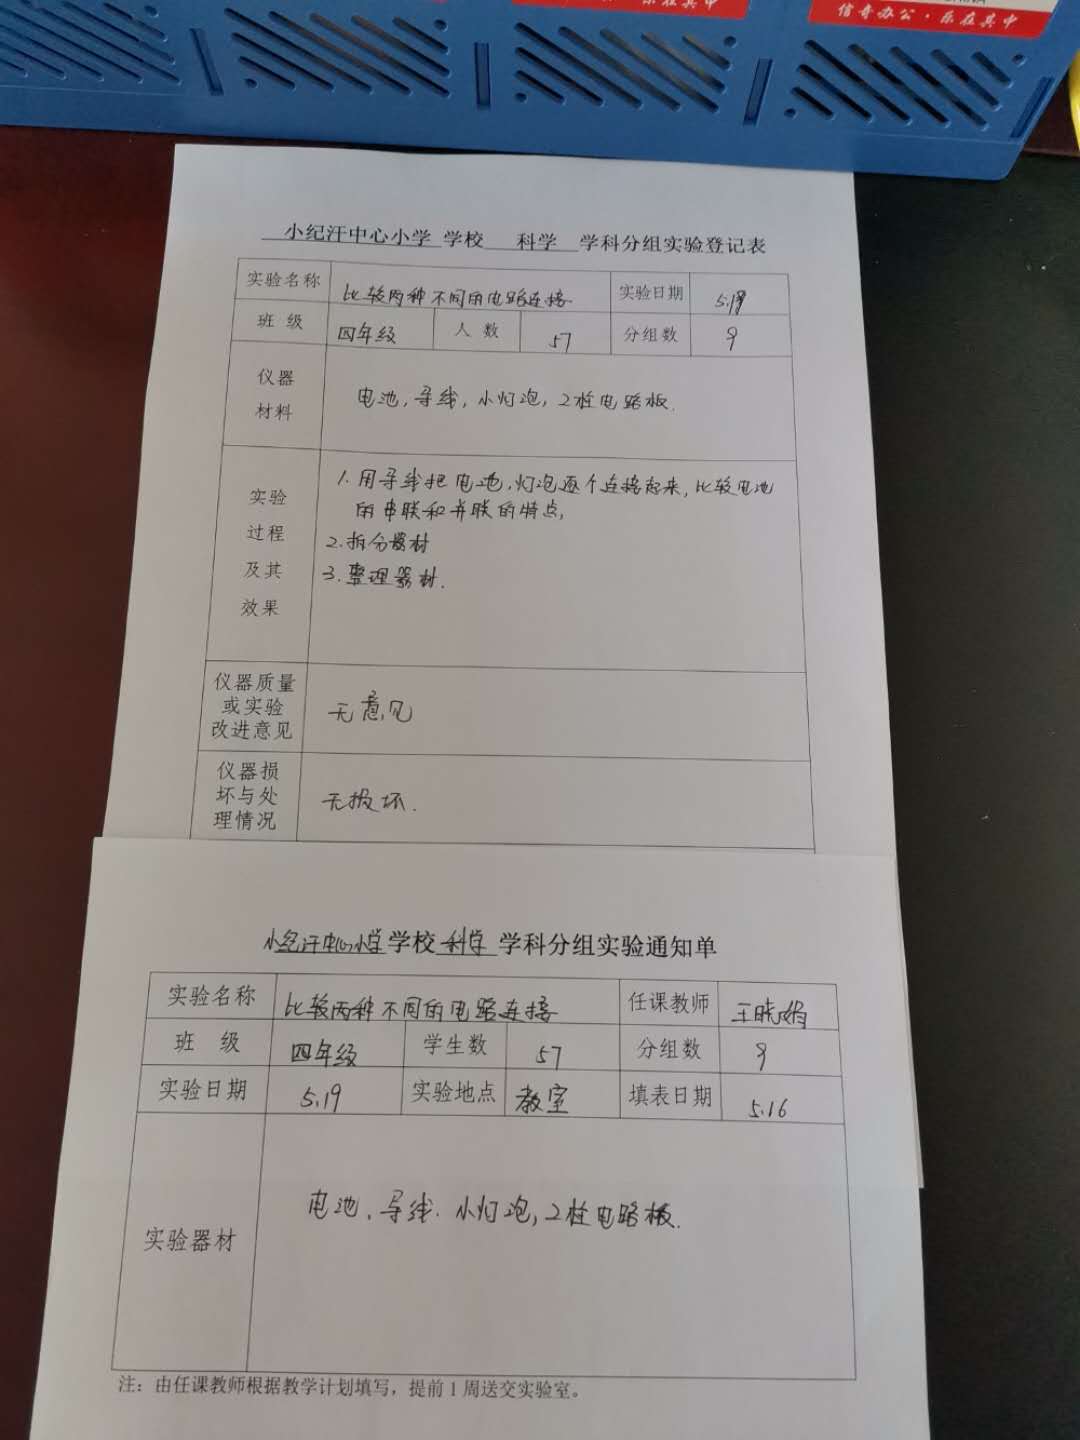 信奇办公·乐在其中
小纪汗中心小学 学校 科学 学科分组实验登记表
实验名称 比较两种不同的电路连接 实验日期 5.19
班 级 四年级 人 数 57 分组数 9
仪器材料 电池,导线,小灯泡,工桩电路板.
实验过程及其效果
1.用导线把电池,灯泡逐个连接起来,比较电池
的串联和并联的特点,
2.拆分器材
3.整理器材.
仪器质量或实验改进意见 无意见
仪器损坏与处理情况 无损坏.
小纪汗中心小学 学校 科学 学科分组实验通知单
实验名称 比较两种不同的电路连接 任课教师 王晓娟
班 级 四年级 学生数 57 分组数 9
实验日期 5.19 实验地点 教室 填表日期 5.16
实验器材 电池,导线.小灯泡,工桩电路板.
注:由任课教师根据教学计划填写,提前1周送交实验室。